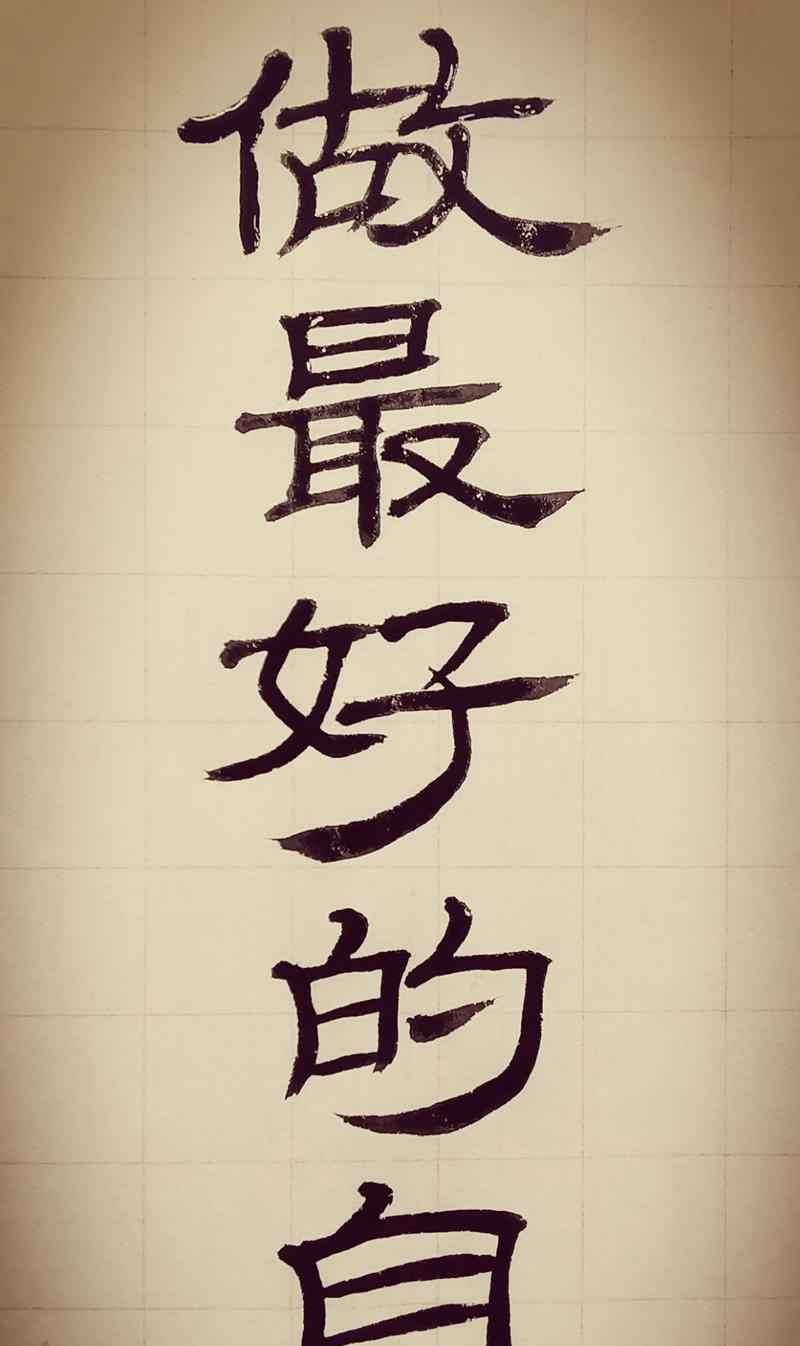 做最好的自